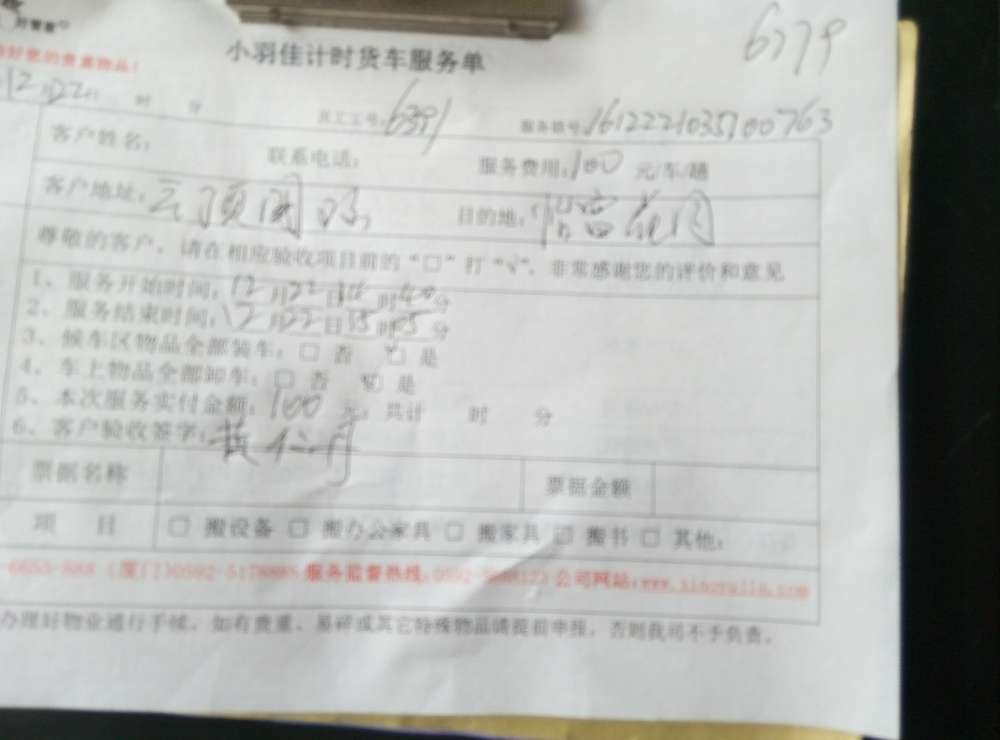 好管家
6779
小羽佳计时货车服务单
好您的贵重物品!
12月22日 时 分 员工工号:6391 服务单号:161222103700763
客户姓名: 联系电话: 服务费用:100 元/车/趟
客户地址:云顶 目的地:怡富花园
尊敬的客户,请在相应验收项目前的“□”打“√”,非常感谢您的评价和意见
1、服务开始时间:12月22日 时40分
2、服务结束时间:12月22日15时05分
3、候车区物品全部装车:□ 否 ☑ 是
4、车上物品全部卸车:□ 否 ☑ 是
5、本次服务实付金额:100元;共计 时 分
6、客户验收签字:黄
票据名称 票据金额
项 目 □ 搬设备 □ 搬办公家具 □ 搬家具 ☑ 搬书 □ 其他:
(厦门)0592-5178885 服务监督热线: 公司网站:www.xiaoyujia.com
办理好物业通行手续,如有贵重、易碎或其它特殊物品请提前申报,否则我司不予负责。